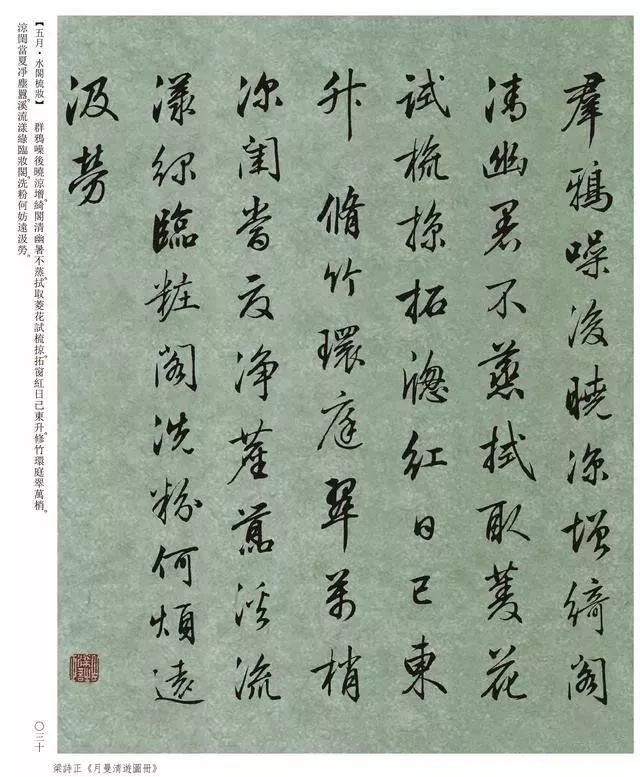 羣鴉噪後曉涼增綺閣
清幽暑不蒸拭取菱花
試梳掠拓牕紅日已東
升 脩竹環庭翠萬梢
涼閨當夏淨塵囂溪流
漾綠臨粧閣洗粉何煩遠
汲勞
【五月·水閣梳妝】 群鴉噪後曉涼增。綺閣清幽暑不蒸。拭取菱花試梳掠。拓窗紅日已東升。修竹環庭翠萬梢。
涼閨當夏淨塵囂。溪流漾綠臨妝閣。洗粉何妨遠汲勞。
〇三十
梁詩正《月曼清遊圖冊》